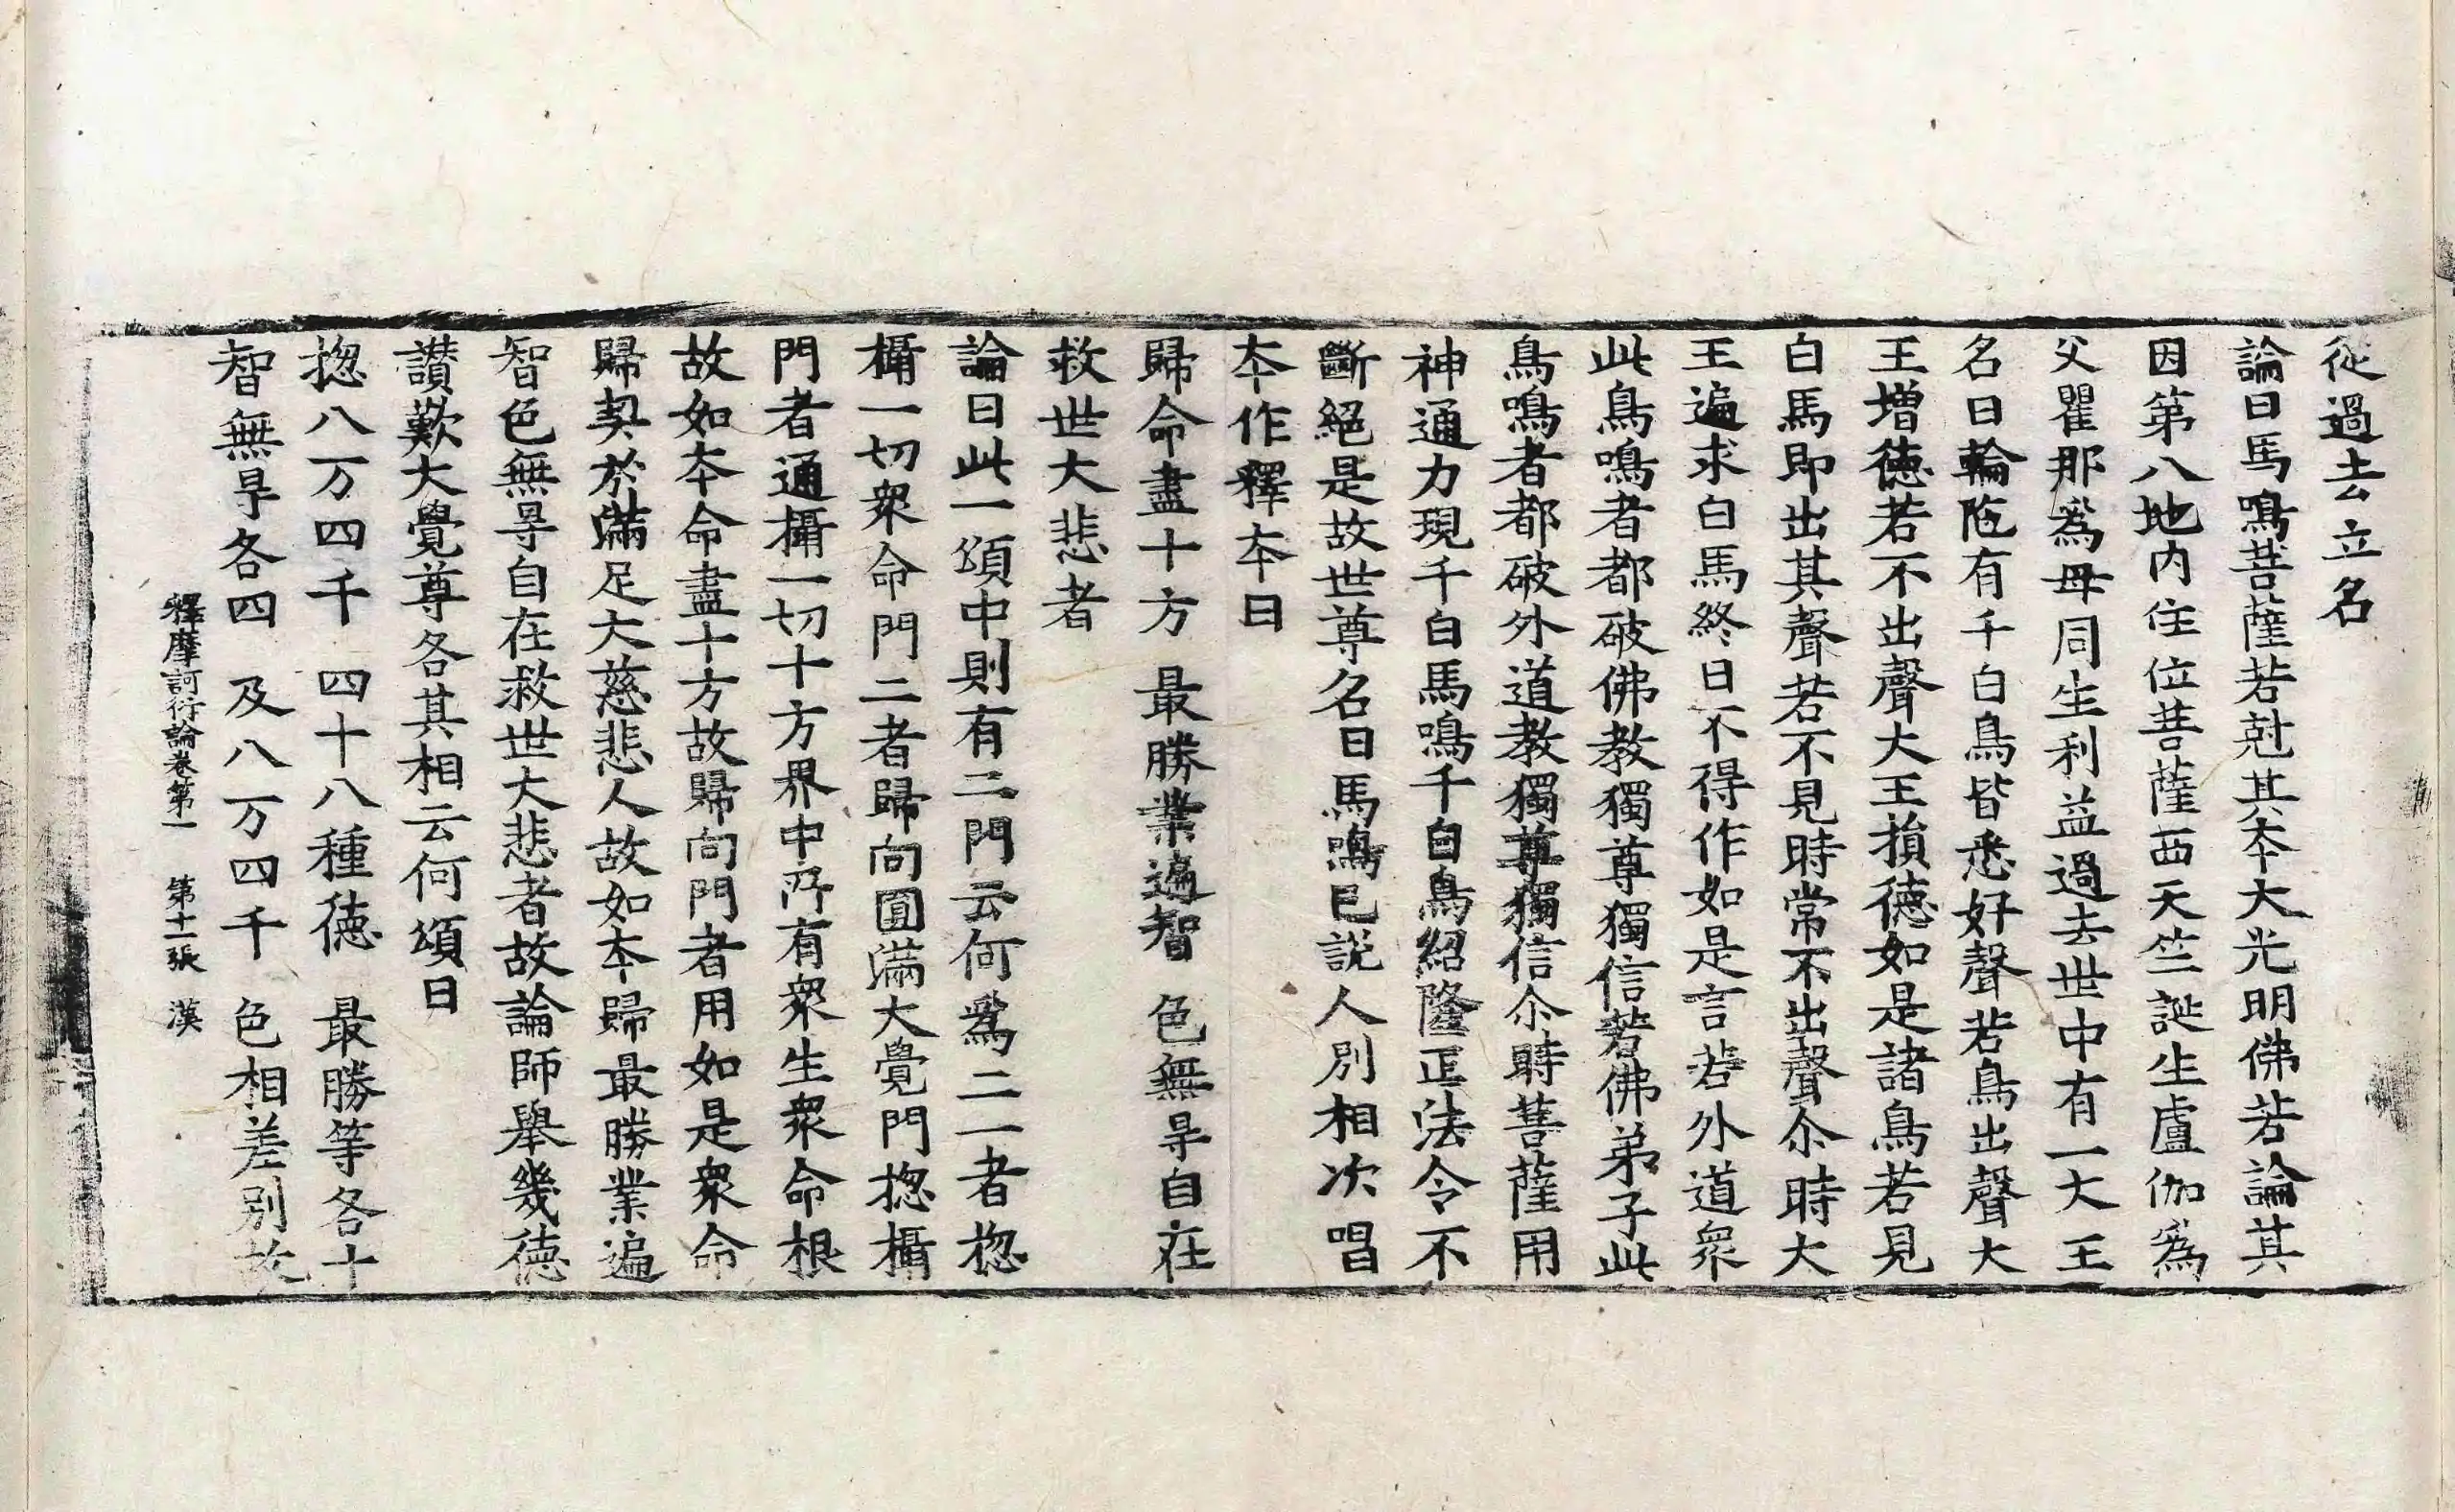 従過去立名
論曰馬鳴菩薩若尅其夲大光明佛若論其
因第八地内住位菩薩西天竺誕生盧伽為
父瞿那為母同生利益過去世中有一大王
名曰輪陁有千白鳥皆悉好聲若鳥出聲大
王增德若不出聲大王損德如是諸鳥若見
白馬即出其聲若不見時常不出聲尒時大
王遍求白馬終日不得作如是言若外道衆
此鳥鳴者都破佛教獨尊獨信若佛弟子此
鳥鳴者都破外道教獨尊獨信尒時菩薩用
神通力現千白馬鳴千白鳥紹隆正法令不
斷絕是故世尊名曰馬鳴已說人別相次唱
夲作釋夲曰
歸命盡十方　最勝業遍智　色無㝵自在
救世大悲者
論曰此一頌中則有二門云何為二一者揔
攝一切衆命門二者歸向圓滿大覺門揔攝
門者通攝一切十方界中所有衆生衆命根
故如夲命盡十方故歸向門者用如是衆命
歸契於滿足大慈悲人故如夲歸最勝業遍
智色無㝵自在救世大悲者故論師舉幾德
讃歎大覺尊各其相云何頌曰
揔八万四千　四十八種德　最勝等各十
智無㝵各四　及八万四千　色相差別故
釋摩訶衍論卷第一　第十一張　漢